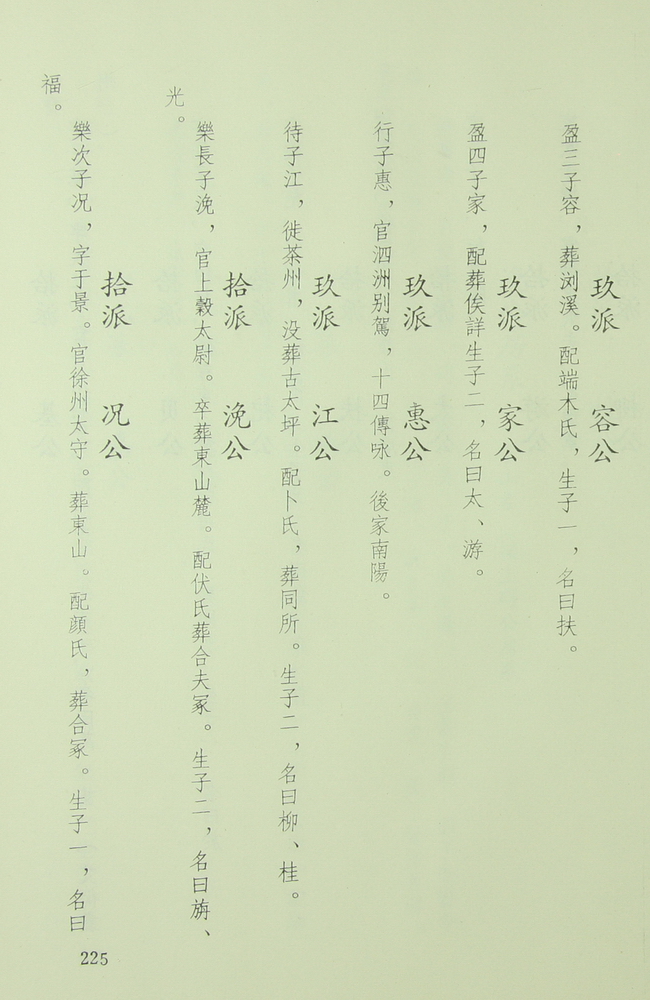 玖派　容公
盈三子容，葬浏溪。配端木氏，生子一，名曰扶。
玖派　家公
盈四子家，配葬俟詳生子二，名曰太、游。
玖派　惠公
行子惠，官泗洲别駕，十四傳咏。後家南陽。
玖派　江公
待子江，徙茶州，没葬古太坪。配卜氏，葬同所。生子二，名曰柳、桂。
拾派　浼公
樂長子浼，官上穀太尉。卒葬東山麓。配伏氏葬合夫冢。生子二，名曰旃、
光。
拾派　况公
樂次子况，字于景。官徐州太守。葬東山。配顔氏，葬合冢。生子一，名曰
福。
225